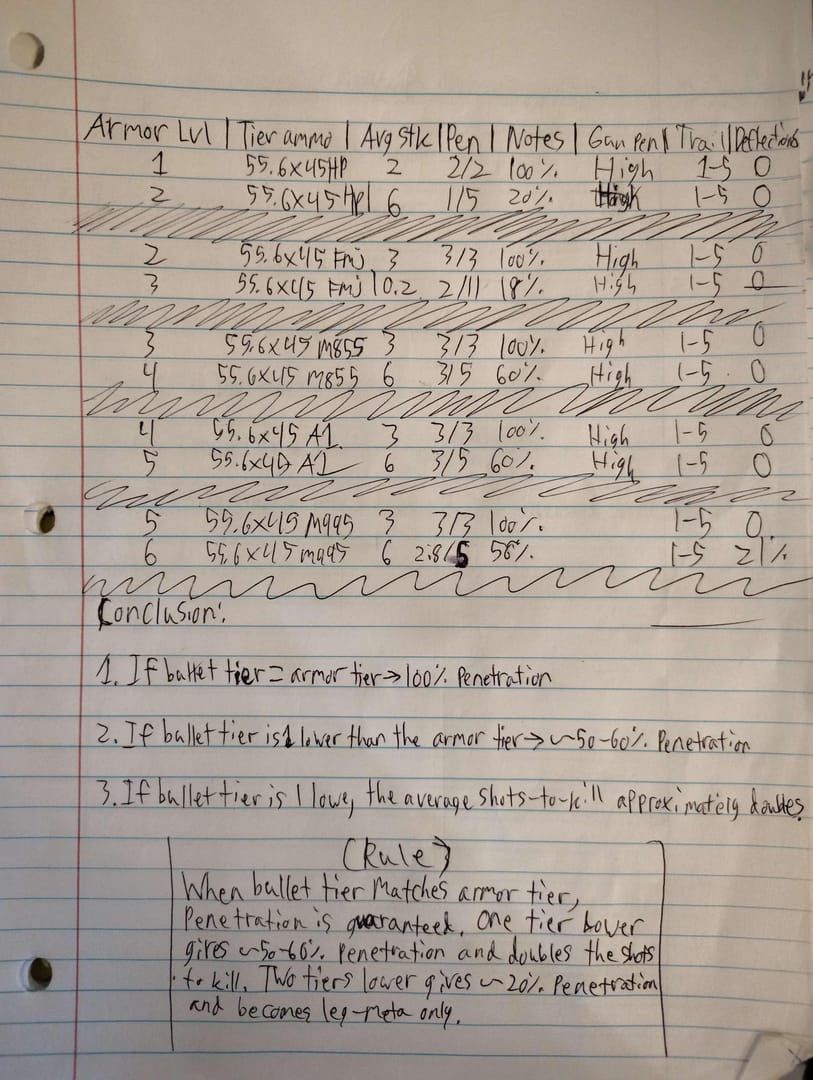 Armor Lvl | Tier ammo | Avg Stk | Pen | Notes | Gun Pen | Trail | Deflections
1 55.6x45HP 2 2/2 100% High 1-5 0
2 55.6x45 HP | 6 1/5 20% High 1-5 0
2 55.6x45 FMJ 3 3/3 100% High 1-5 0
3 55.6x45 FMJ 10.2 2/11 18% High 1-5 0
3 55.6x45 M855 3 3/3 100% High 1-5 0
4 55.6x45 M855 6 3/5 60% High 1-5 0
4 55.6x45 A1 3 3/3 100% High 1-5 0
5 55.6x45 A1 6 3/5 60% High 1-5 0
5 55.6x45 M995 3 3/3 100% 1-5 0
6 55.6x45 M995 6 2.8/5 56% 1-5 21%
Conclusion:
1. If bullet tier = armor tier → 100% Penetration
2. If bullet tier is 1 lower than the armor tier → ~50-60% Penetration
3. If bullet tier is 1 lowe, the average shots-to-kill approximately doubles.
(Rule)
When bullet tier Matches armor tier,
Penetration is guaranteed. One tier lower
gives ~50-60% Penetration and doubles the shots
to kill. Two tiers lower gives ~20% Penetration
and becomes leg-meta only.